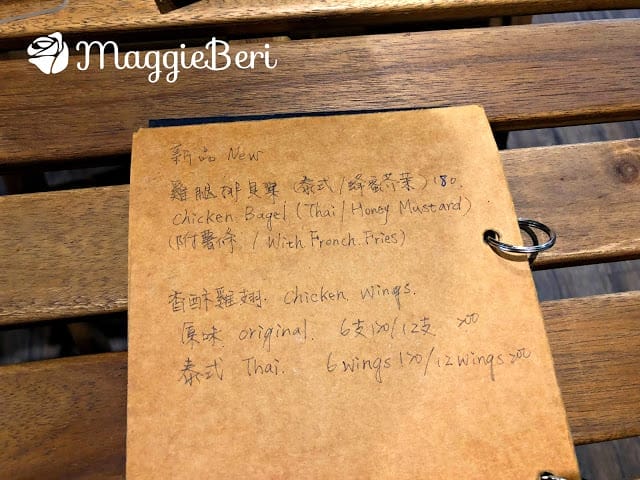 MaggieBeri
新品 New
雞腿排貝果 (泰式/蜂蜜芥茉) 180.
Chicken Bagel (Thai/Honey Mustard)
(附薯條 / With French Fries)
香酥雞翅. Chicken Wings.
原味 original. 6支120/12支 200
泰式 Thai. 6 wings 120/12 wings 200